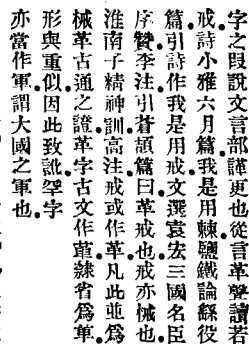 字之叚說文言部諽更也從言革聲讀若
戒詩小雅六月篇我是用棘鹽鐵論繇役
篇引詩作我是用戒文選袁宏三國名臣
序贊李注引蒼頡篇曰革戒也戒亦械也
淮南子精神訓高注戒或作革凡此並爲
械革古通之證革字古文作𠦶隸省爲革
形與重似因此致訛罕字
亦當作軍謂大國之軍也